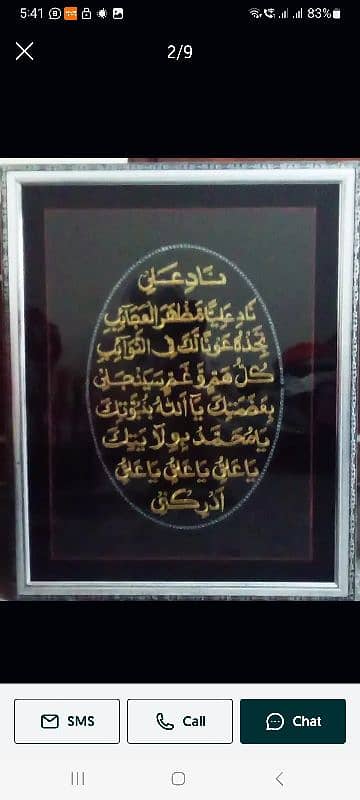 5:41
83%
2/9
ناد علی
ناد علیا مظهر العجائب
تجده عونا لك فی النوائب
كل هم و غم سينجلی
بعظمتك یا الله بنبوتك
یا محمد بولایتك
یا علی یا علی یا علی
ادركنی
SMS
Call
Chat